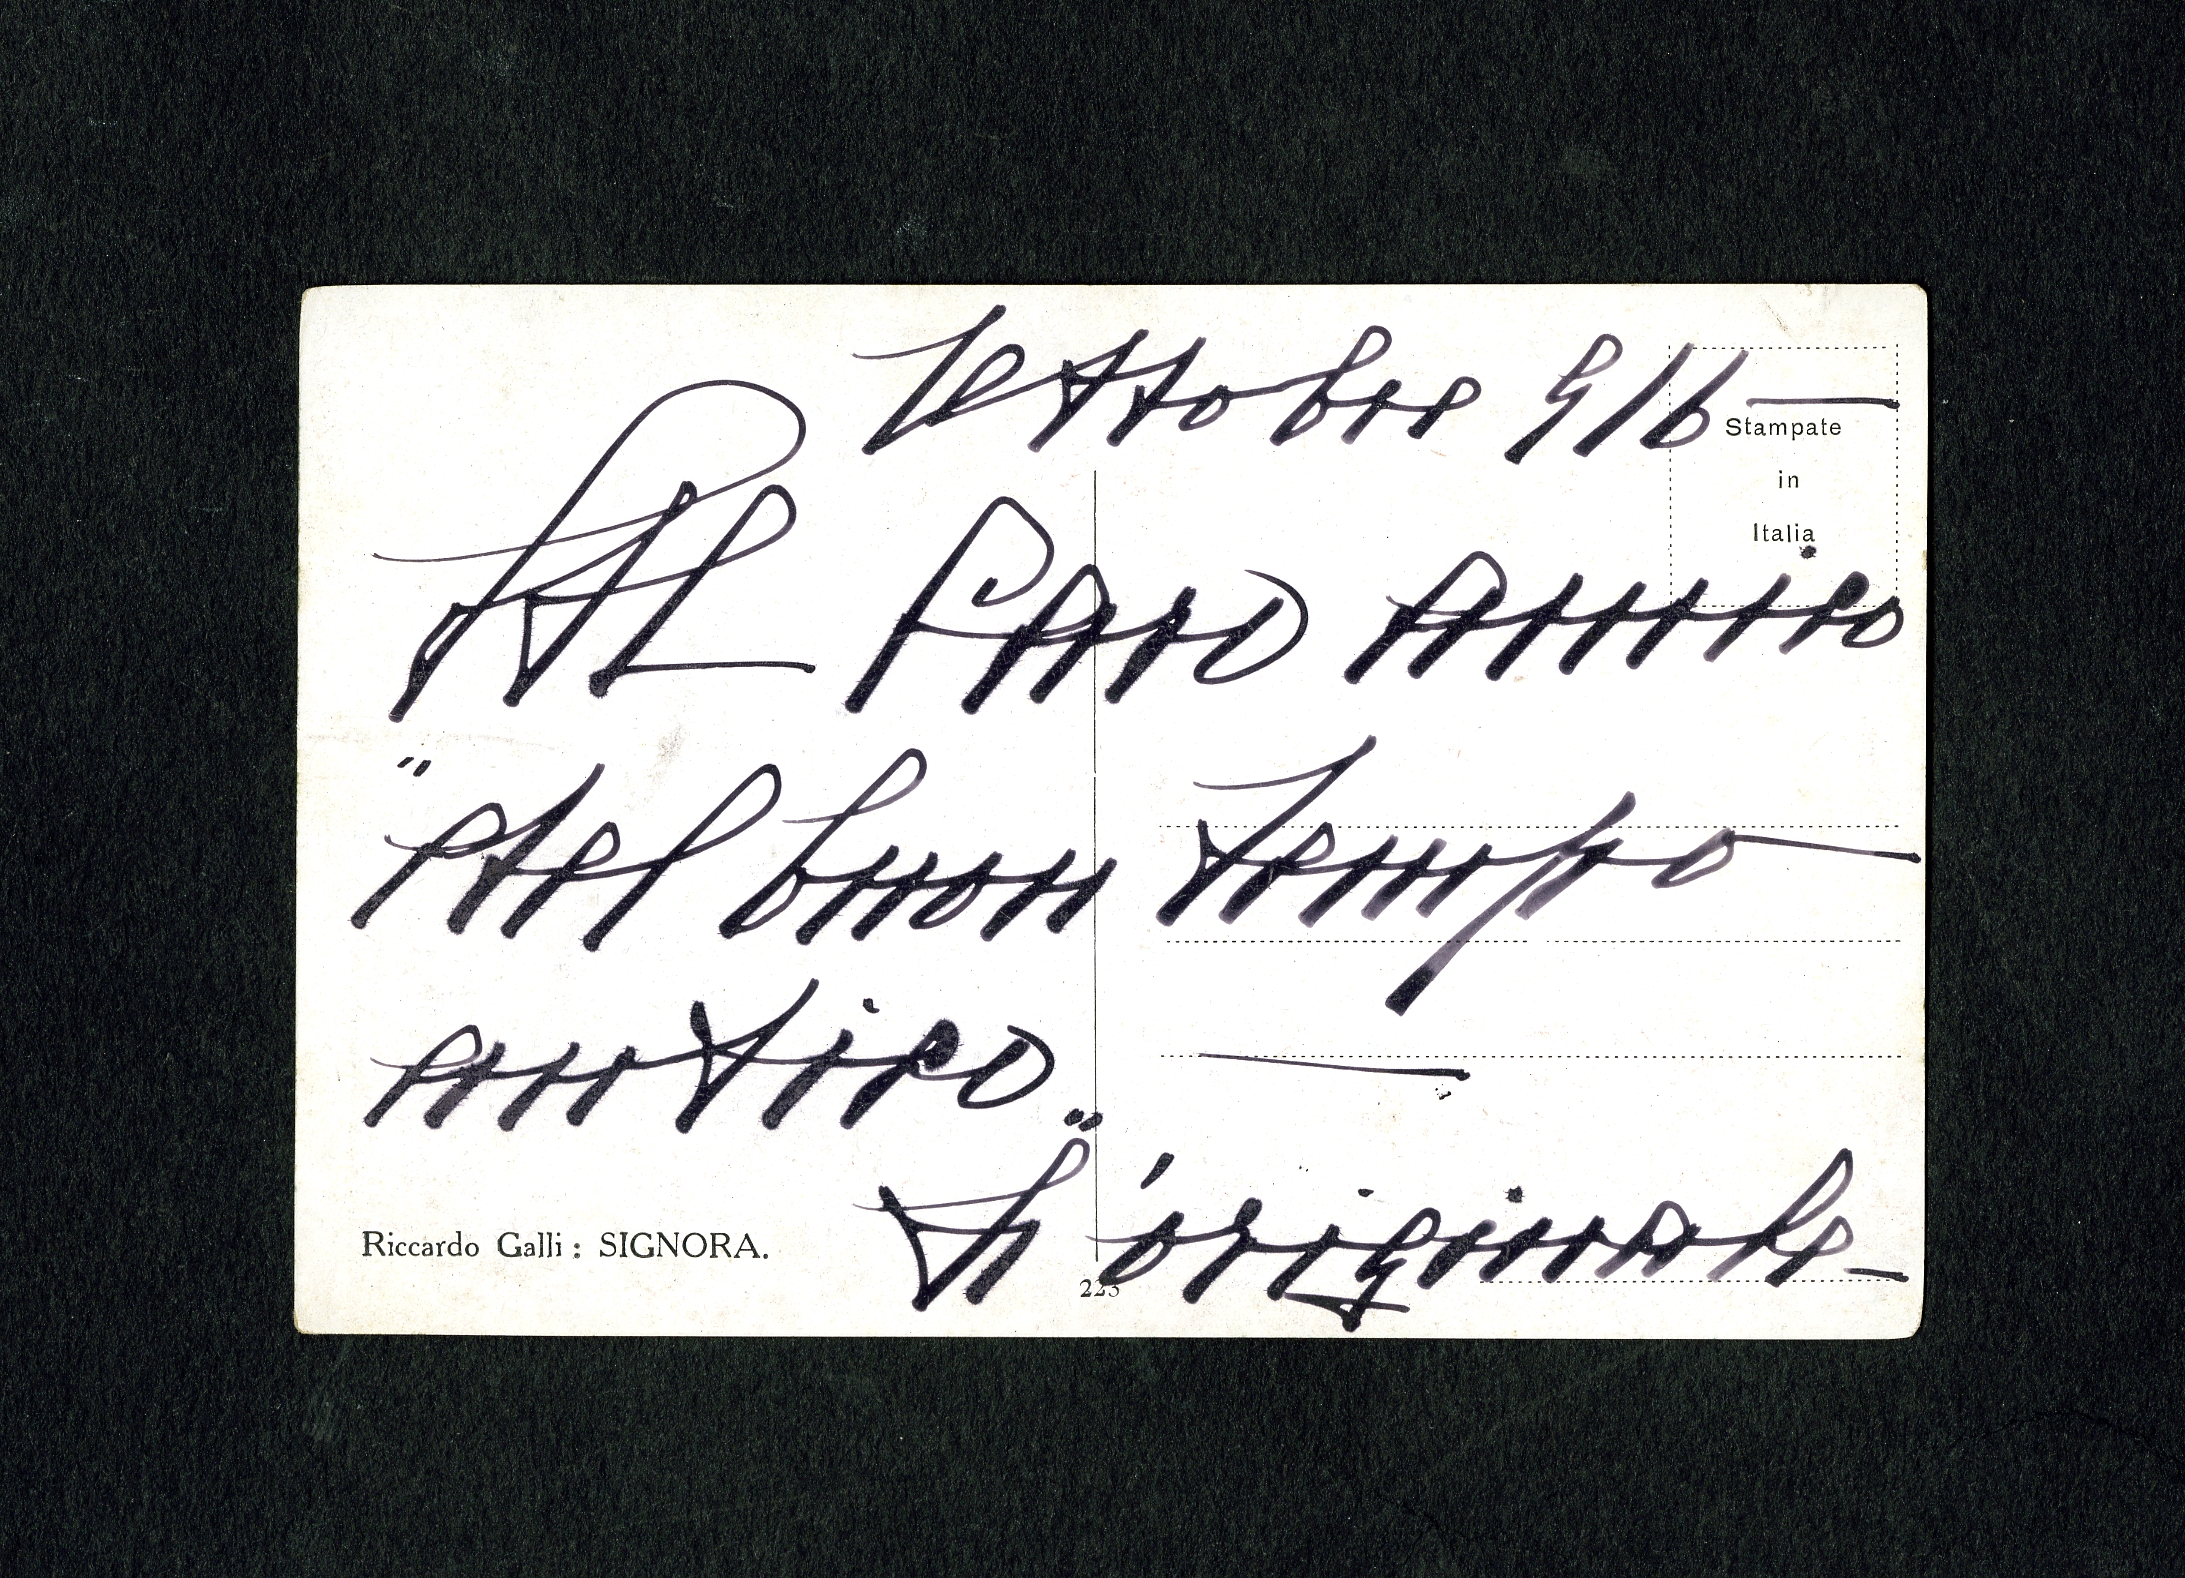 Ottobre 916 —
Stampate
in
Italia
Al Caro amico
"del buon tempo —
antico"
L'originale —
Riccardo Galli : SIGNORA.
223